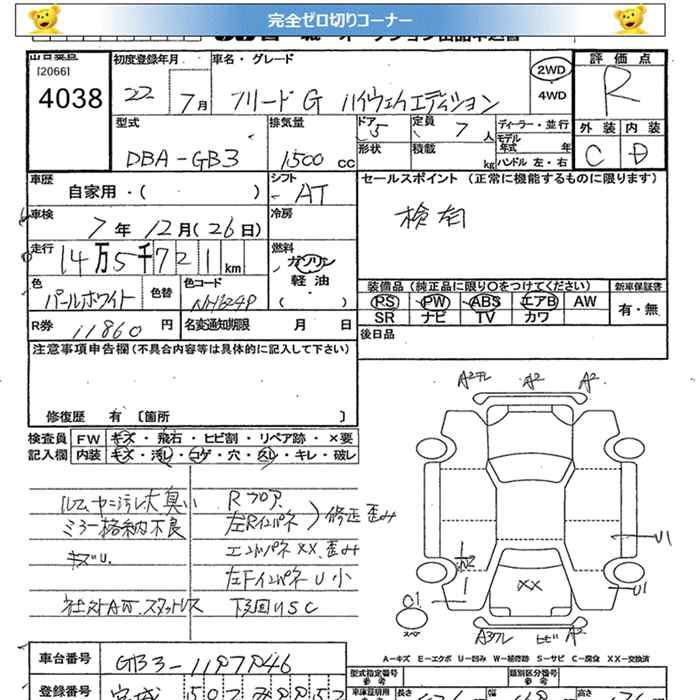 完全ゼロ切りコーナー
[2066]
4038
初度登録年月
22 7月
車名・グレード
フリード G ハイウェイエディション
2WD
4WD
評価点
R
外装 内装
C D
型式
DBA-GB3
排気量
1500 cc
ドア
5
定員
7 人
形状
積載
kg
ディーラー・並行
モデル年式 年
ハンドル 左・右
車歴
自家用・( )
シフト
AT
セールスポイント (正常に機能するものに限ります)
検有
車検
7年12月(26日)
冷房
走行
14万5千721km
燃料
ガソリン
軽油
( )
色
パールホワイト
色替
色コード
装備品(純正品に限り○をつけてください)
新車保証書
PS PW ABS エアB AW
有・無
SR ナビ TV カワ
R券
11860円
名変通知期限 月 日
後日品
注意事項申告欄(不具合内容等は具体的に記入して下さい)
修復歴 有 〔箇所 〕
検査員 FW キズ・飛石・ヒビ割・リペア跡・×要
記入欄 内装 キズ・汚レ・コゲ・穴・スレ・キレ・破レ
ルーム ヤニ汚レ大 臭い
ミラー格納不良
キズU.
社外ストAW. スタットレス
Rフロア.
左Rインパネ 修正歪み
エンドパネ XX. 歪み
左Fインパネ U 小
下回りSC
A2 A2
U1
XX
U1
スペア
A-キズ E-エクボ U-凹み W-補修跡 S-サビ C-腐食 XX-交換済
車台番号
GB3-1197946
型式指定番号
類別区分番号
登録番号
宮城
長さ
幅
高さ